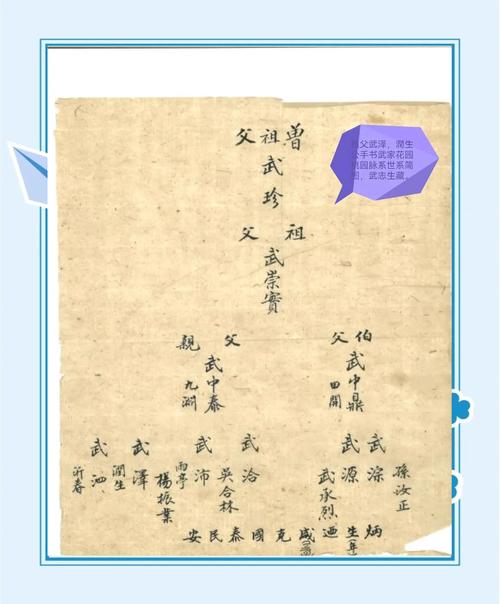 曾祖父
武珍
祖父
武崇實
伯父
武中鼎
田開
父親
武中泰
九淵
孫汝正
武淙
武源
武承烈
武洽
吳合林
武沛
雨亭
楊振業
武澤
潤生
武泗
沂春
炳生迺咸克國泰民安
父武泽，潤生
公手书武家花园
园脉系世系简
图，武志生藏。